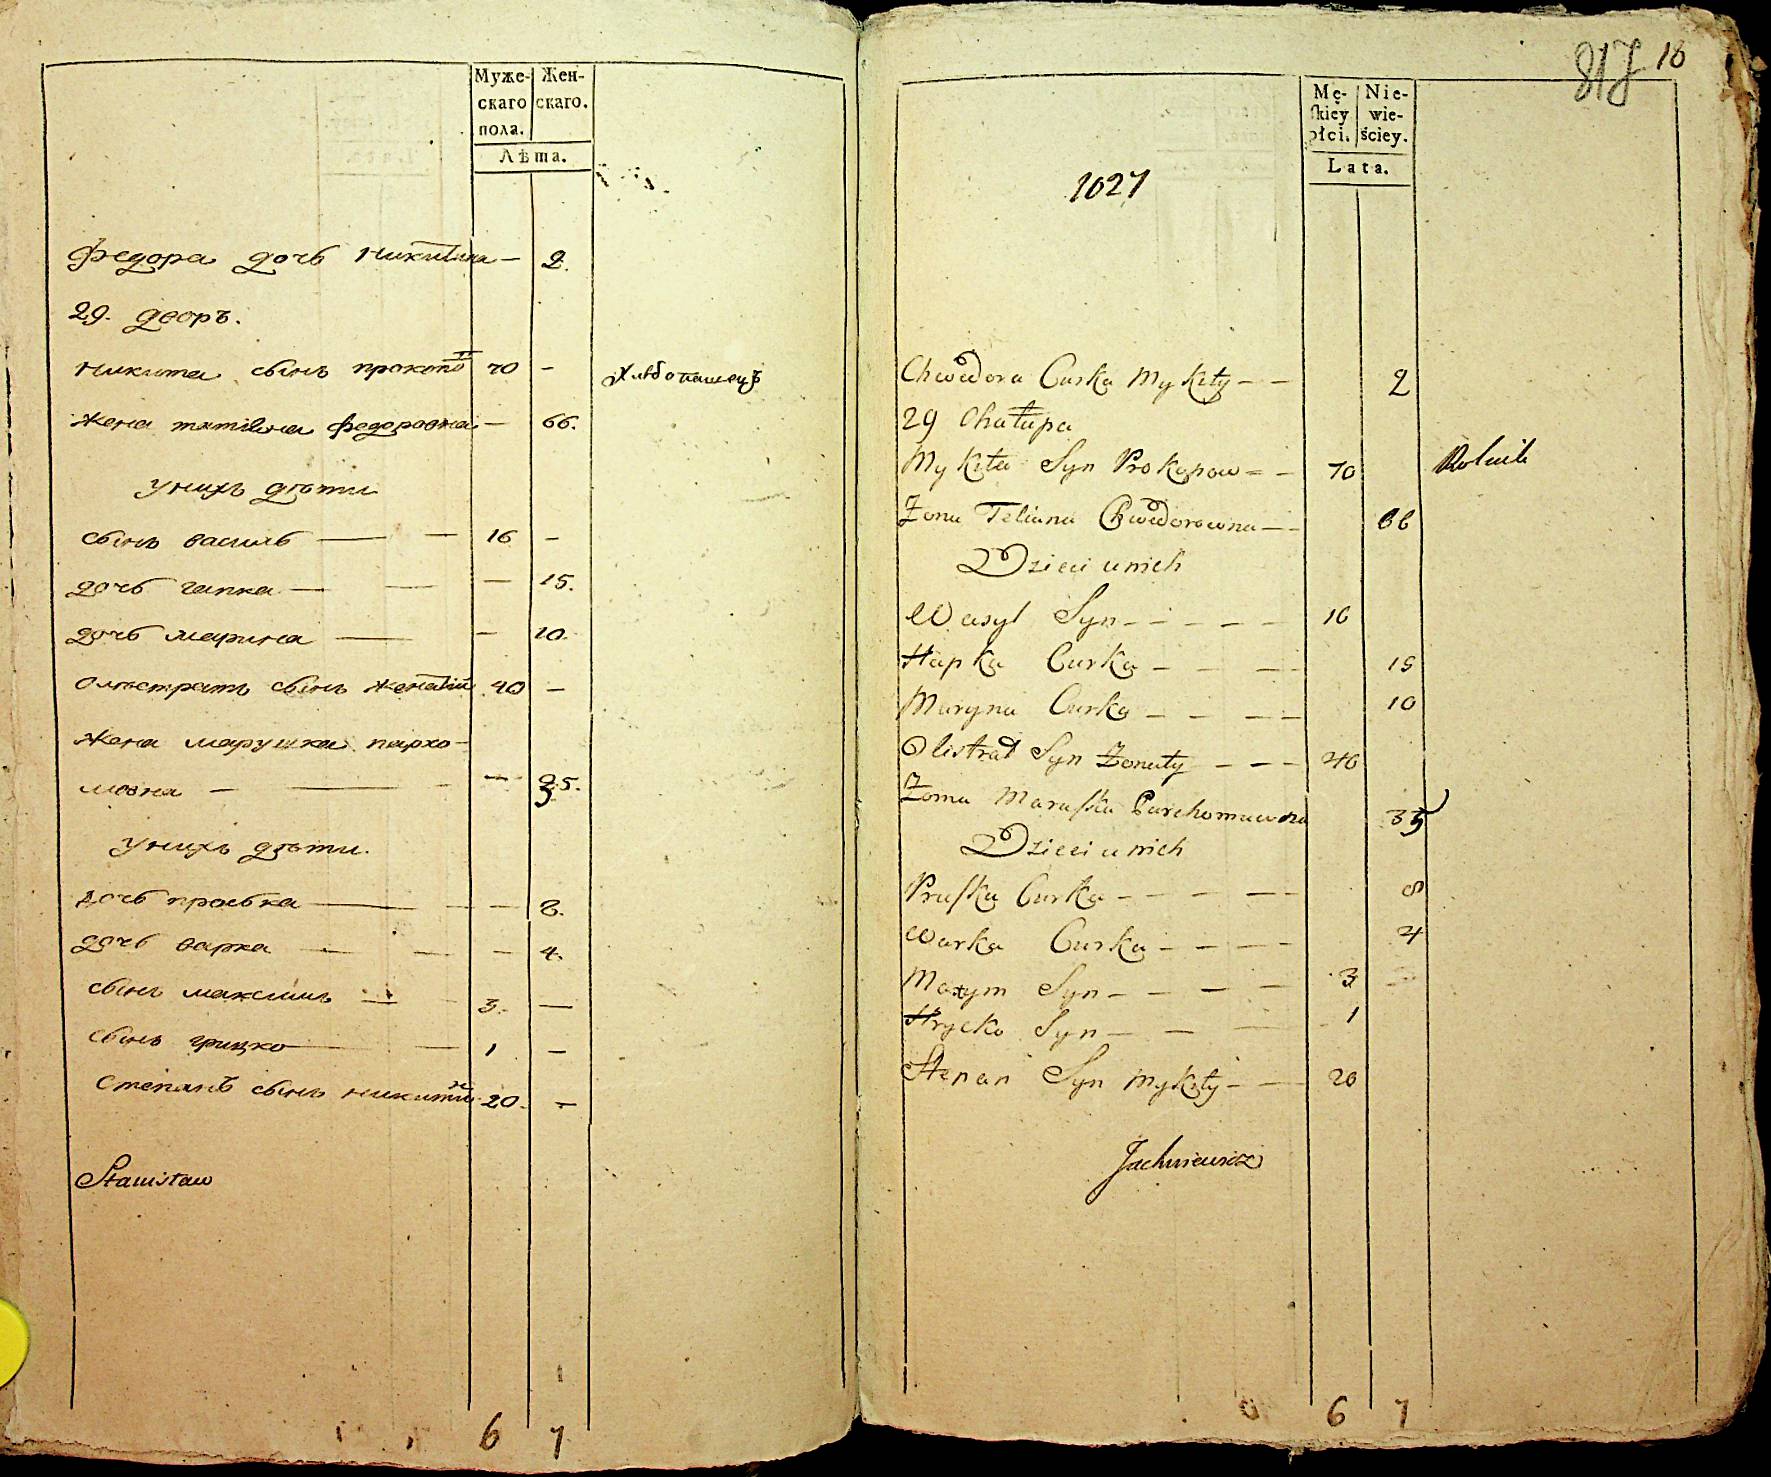 Муже-
скаго
пола.
Жен-
скаго.
Лѣта.
Федора дочь никитина — 2.
29. дворъ.
никита сынъ прокопо 70 — Хлѣбопашецъ
жена татiяна федоровна — 66.
у нихъ дѣти
сынъ василь — — 16 —
дочь гапка — — — 15.
дочь марина — — 10.
олистратъ сынъ женатiй 40 —
жена марушка пархо-
мовна — — — 35.
у нихъ дѣти.
дочь проська — — — 8.
дочь варка — — — 4.
сынъ максимъ — 3. —
сынъ грицко — — 1 —
Степанъ сынъ никити 20. —
Stanisław
6 7
18
1027
Mę-
skiey
płci.
Nie-
wie-
ściey.
Lata.
Chwedora Curka Mykity — — 2
29 Chałupa
Mykita Syn Prokopow — — 70 Rolnik
Żona Tetiana Chwedorowna — — 66
Dzieci u nich
Wasyl Syn — — — — — 16
Hapka Curka — — — — 15
Maryna Curka — — — — 10
Olistrat Syn Żonaty — — — 40
Żona Maruszka Parchomowna 35
Dzieci u nich
Pruska Curka — — — — — 8
Warka Curka — — — — 4
Maxym Syn — — — — 3
Hrycko Syn — — — 1
Stepan Syn Mykity — — 20
Jachniewicz
6 7